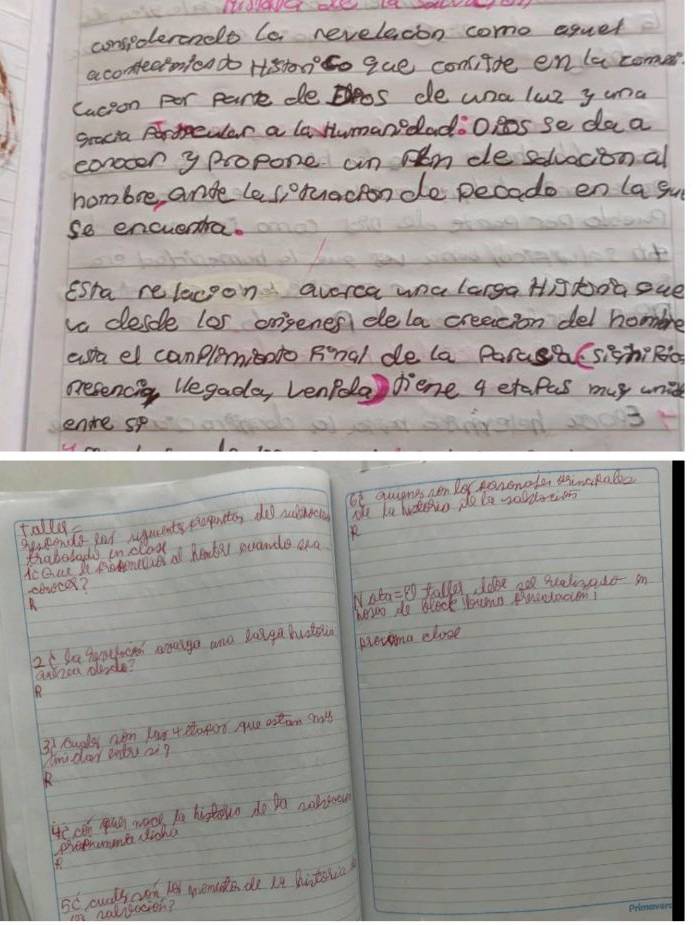 Historia de la salvación
considerando la revelación como aquel
acontecimiento Historico que consiste en la comuni
cacion por parte de Dios de una luz y una
gracia particular a la Humanidad: Dios se da a
conocer y propone un plan de salvación al
hombre, ante la situacion de pecado en la que
se encuentra.
Esta relacion avarca una larga Historia que
va desde los origenes de la creación del hombre
asta el complimiento final de la Parusia (significa
presencia, llegada, venida) tiene 4 etapas muy unid
entre si
taller=
responde las siguiente preguntas del
trabajado en clase
1¿Que le al hombre cuando
conocer?
R
2¿ la avarga una larga historia
desde?
R
3¿ cuales son las 4 etapas que estan muy
unidas entre si?
R
4¿con quien nace la historia de la salvacion
propiamente dicha
R
5¿ cuales son los momentos de la historia
salvación?
6¿ quienes son los personajes principales
de la historia de la salvación
R
Nota= El taller debe ser realizado en
hojas de block buena presentacion
proxima clase
Primavera